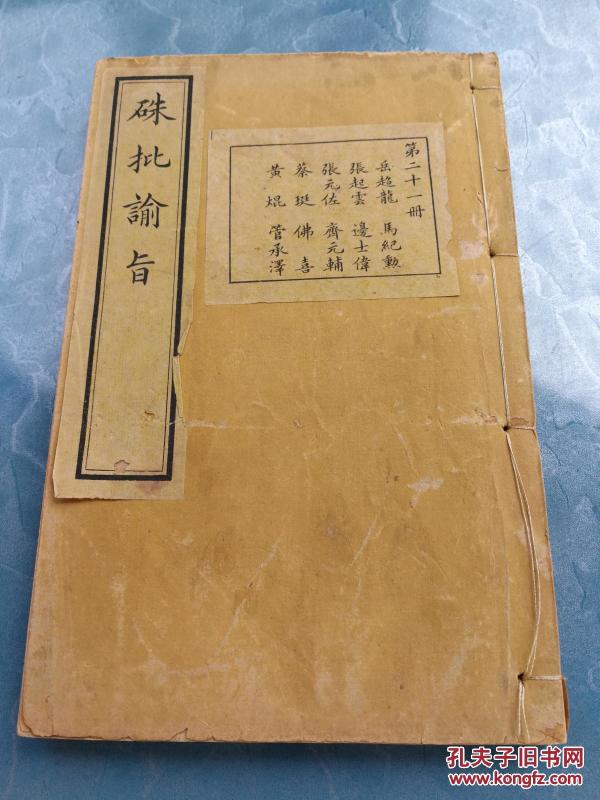 硃批諭旨
第二十一冊
岳超龍 馬紀勳
張起雲 邊士偉
張元佐 齊元輔
蔡珽 佛喜
黃焜 管承澤
孔夫子旧书网
www.kongfz.com